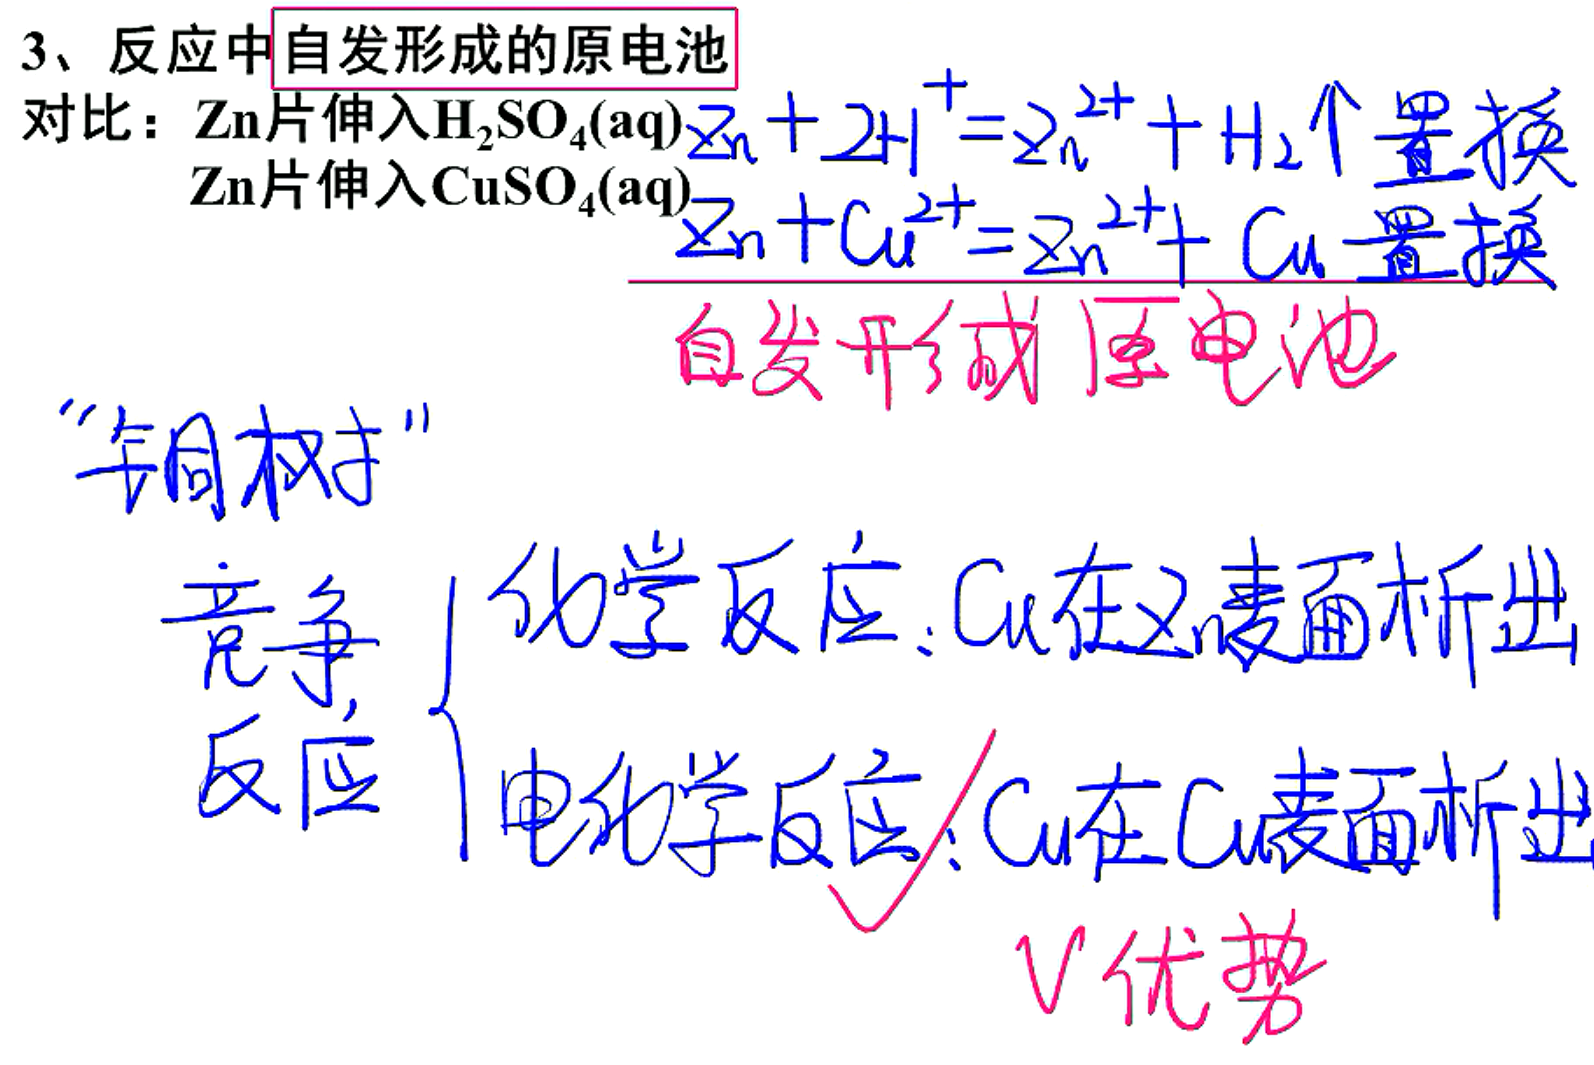 3、反应中自发形成的原电池
对比：Zn片伸入H₂SO₄(aq) Zn + 2H⁺ = Zn²⁺ + H₂↑ 置换
Zn片伸入CuSO₄(aq) Zn + Cu²⁺ = Zn²⁺ + Cu 置换
自发形成原电池
“铜树”
竞争反应
化学反应：Cu在Zn表面析出
电化学反应：Cu在Cu表面析出
V优势